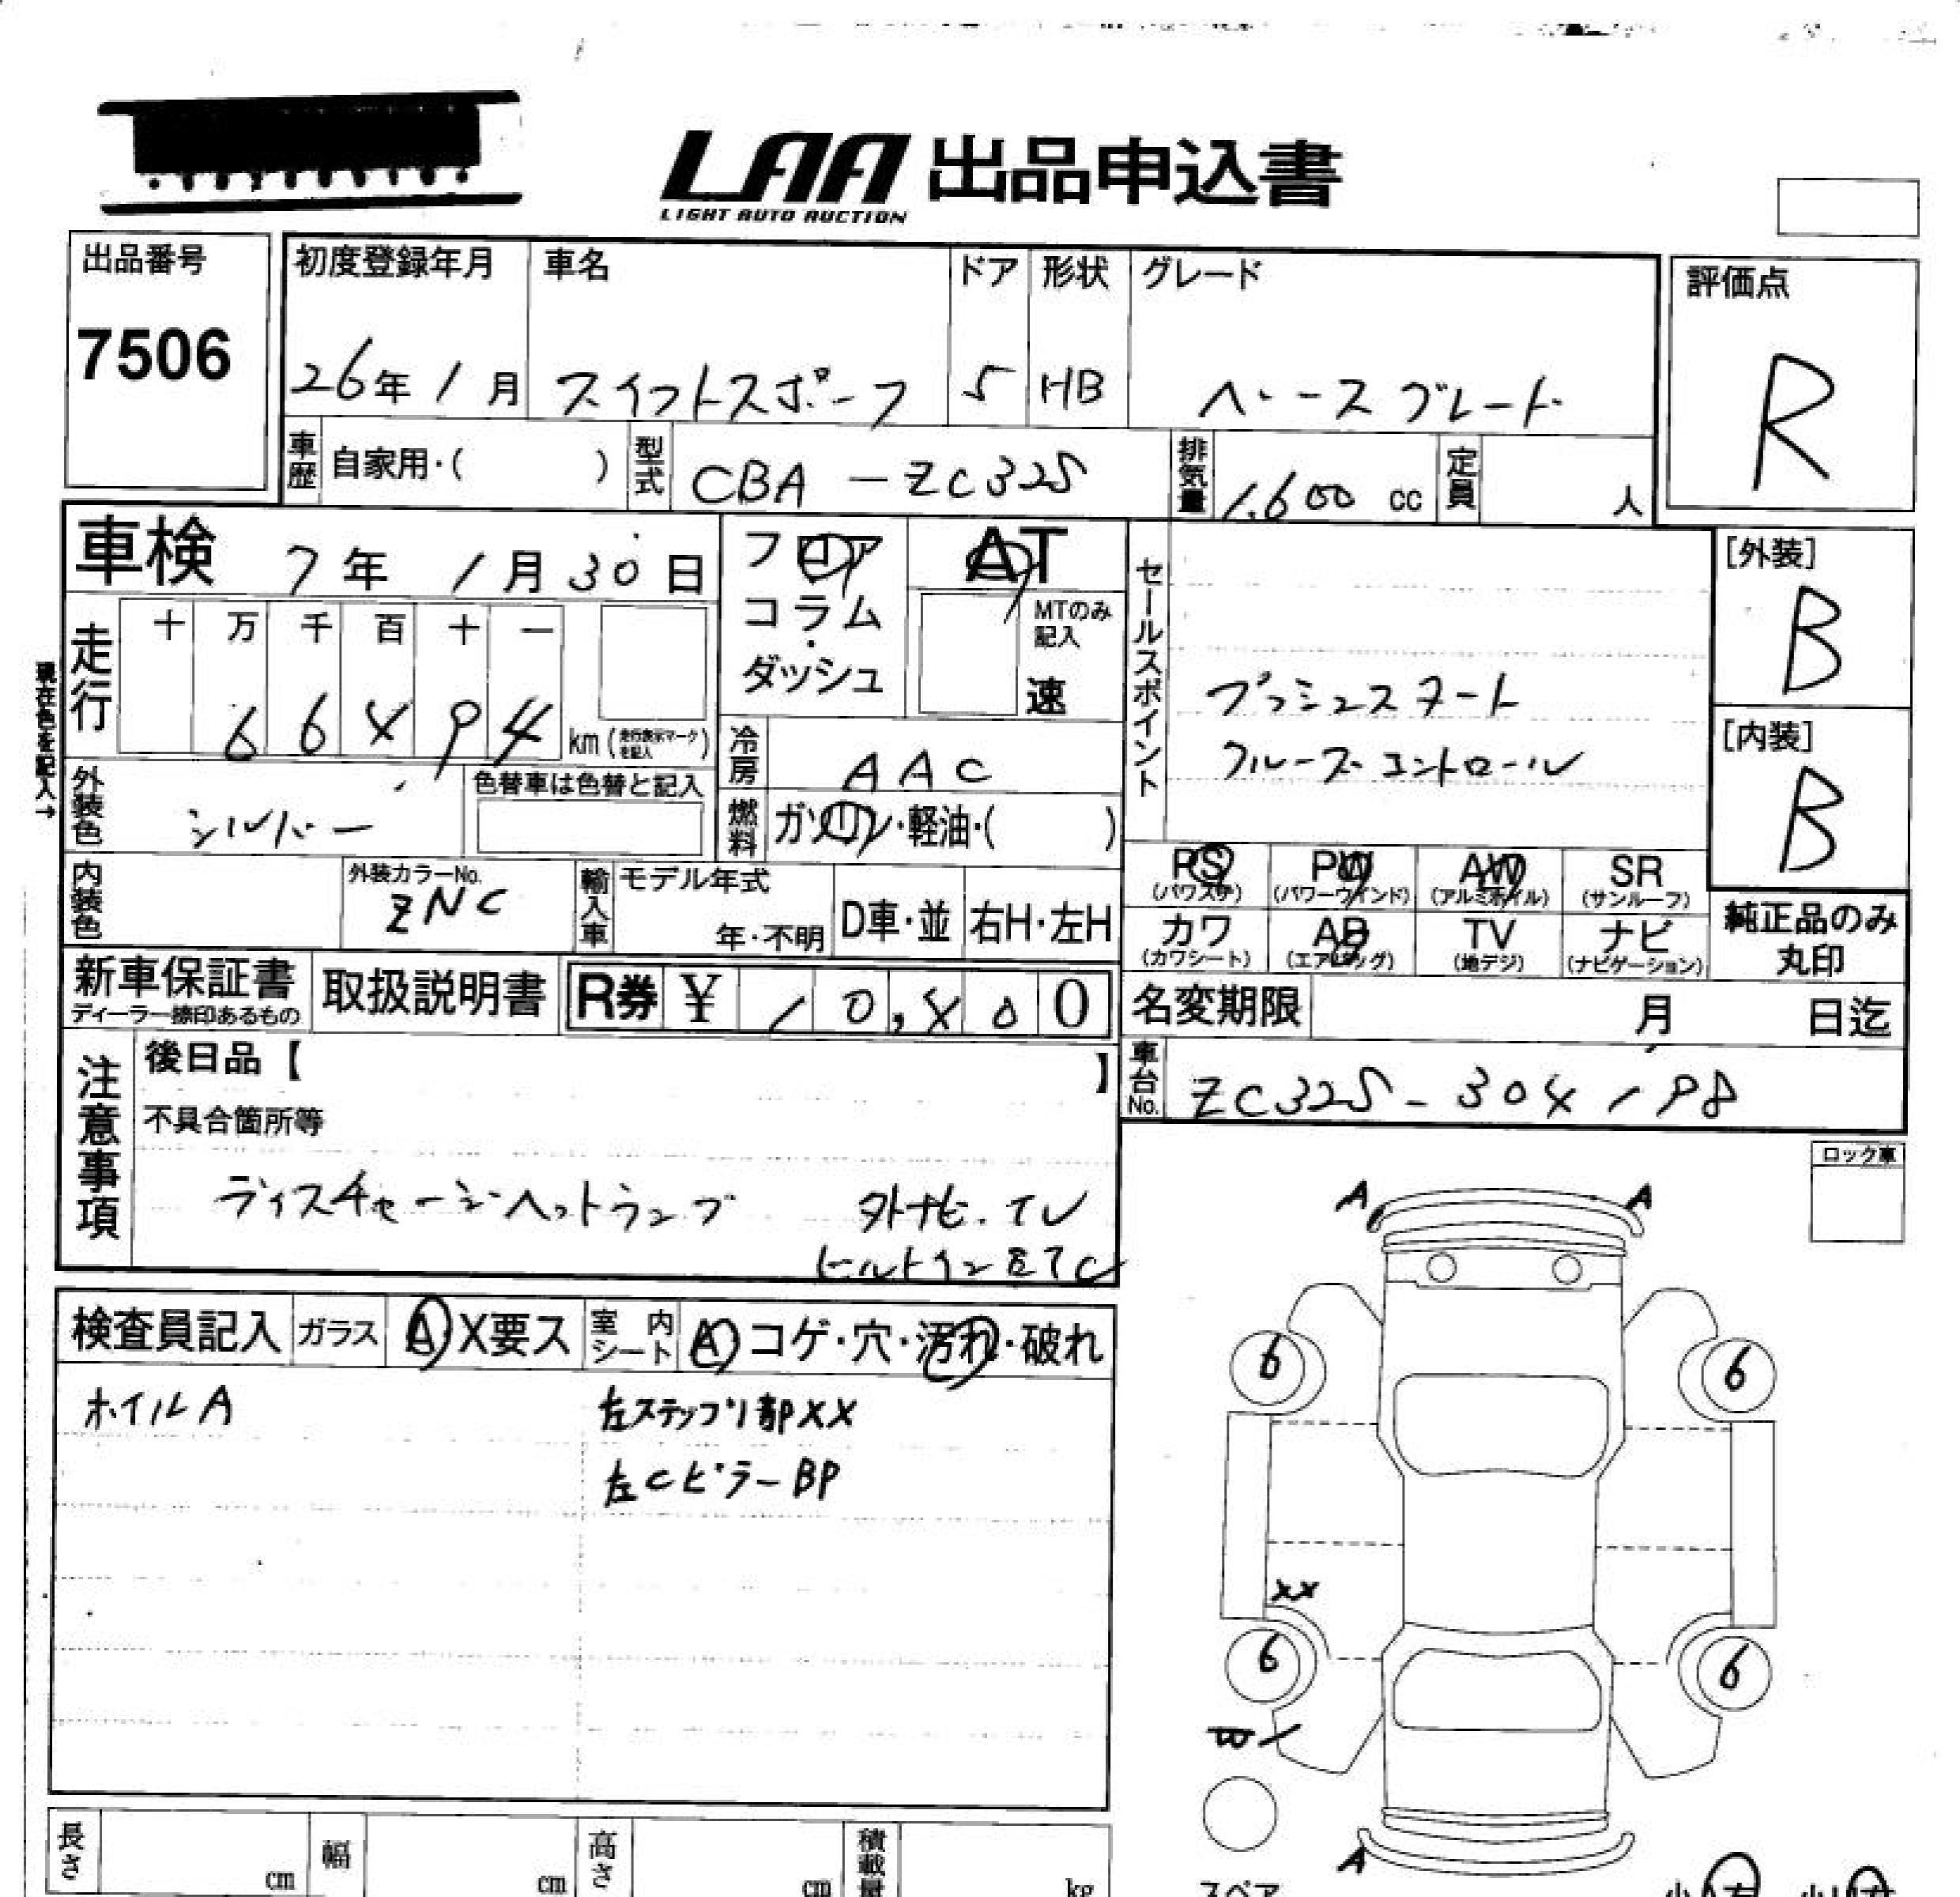 LAA 出品申込書
LIGHT AUTO AUCTION
出品番号
7506
初度登録年月
26年1月
車名
スイフトスポーツ
ドア
5
形状
HB
グレード
ベースグレード
評価点
R
車歴
自家用・( )
型式
CBA-ZC32S
排気量
1.600 cc
定員
人
車検 7年 1月 30日
フロア
コラム
・
ダッシュ
AT
MTのみ
記入
速
セールスポイント
プッシュスタート
クルーズコントロール
[外装]
B
[内装]
B
現在色を記入→
走行
十 万 千 百 十 一
6 6 4 9 4
km (走行表示マークを記入)
冷房
AAC
外装色
シルバー
色替車は色替と記入
燃料
ガソリン・軽油・( )
内装色
外装カラーNo.
ZNC
輸入車
モデル年式
年・不明
D車・並
右H・左H
PS
(パワステ)
PW
(パワーウインド)
AW
(アルミホイル)
SR
(サンルーフ)
カワ
(カワシート)
AB
(エアバッグ)
TV
(地デジ)
ナビ
(ナビゲーション)
純正品のみ
丸印
新車保証書
ディーラー捺印あるもの
取扱説明書
R券 ¥ 10,400
名変期限
月 日迄
車台No.
ZC32S-304198
注意事項
後日品【 】
不具合箇所等
ディスチャージヘットランプ 外ナビ.TV
ビルトインETC
ロック車
検査員記入
ガラス
A X要ス
室内シート
A コゲ・穴・汚れ・破れ
ホイルA
左ステップリ部XX
左CピラーBP
A A
6 6
XX
6 6
A
長さ
cm
幅
cm
高さ
cm
積載量
kg
スペア